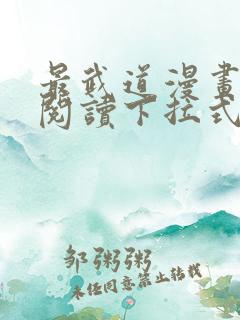 最武道漫畫
閱讀下拉式
邹粥粥
未经同意禁止转载